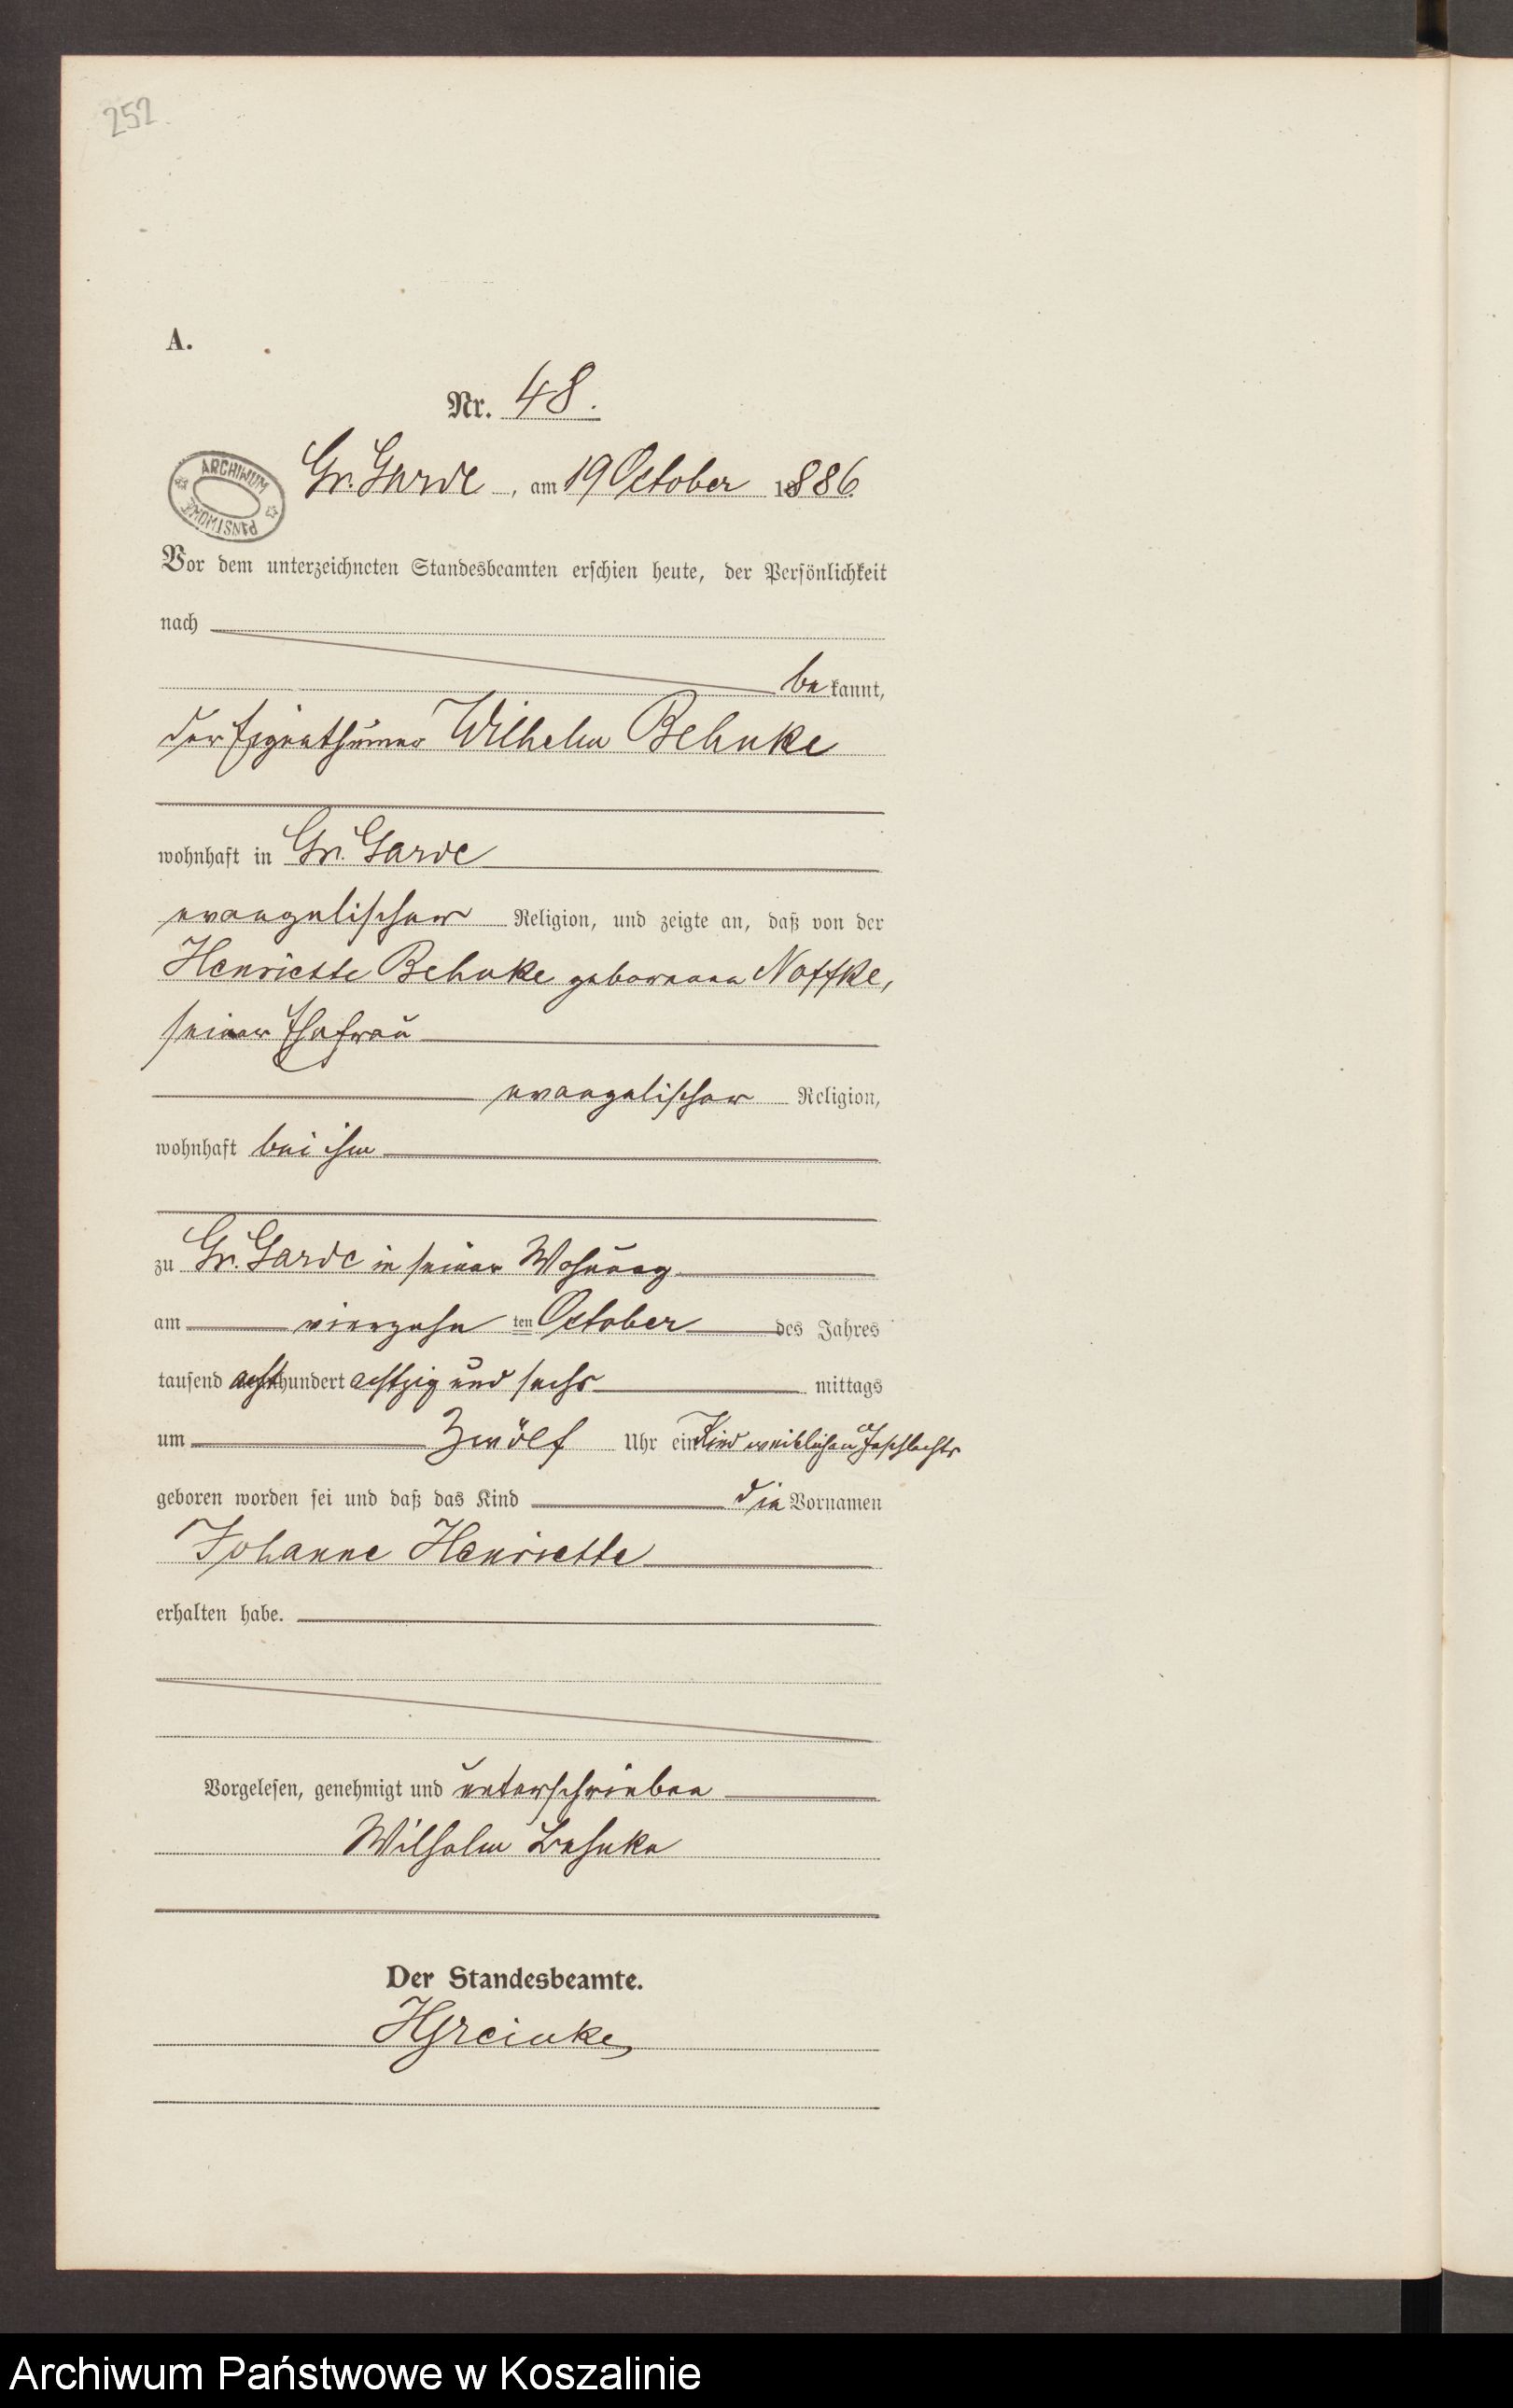 252.
A.
Nr. 48.
ARCHIWUM PAŃSTWOWE
Gr. Garde, am 19 October 1886.
Vor dem unterzeichneten Standesbeamten erschien heute, der Persönlichkeit
nach
bekannt,
der Eigenthümer Wilhelm Behnke
wohnhaft in Gr. Garde
evangelischer Religion, und zeigte an, daß von der
Henriette Behnke geborenen Noffke,
seiner Ehefrau
evangelischer Religion,
wohnhaft bei ihm
zu Gr. Garde in seiner Wohnung
am vierzehn ten October des Jahres
tausend achthundert achtzig und sechs mittags
um Zwölf Uhr ein Kind weiblichen Geschlechts
geboren worden sei und daß das Kind die Vornamen
Johanne Henriette
erhalten habe.
Vorgelesen, genehmigt und unterschrieben
Wilhelm Behnke
Der Standesbeamte.
Archiwum Państwowe w Koszalinie